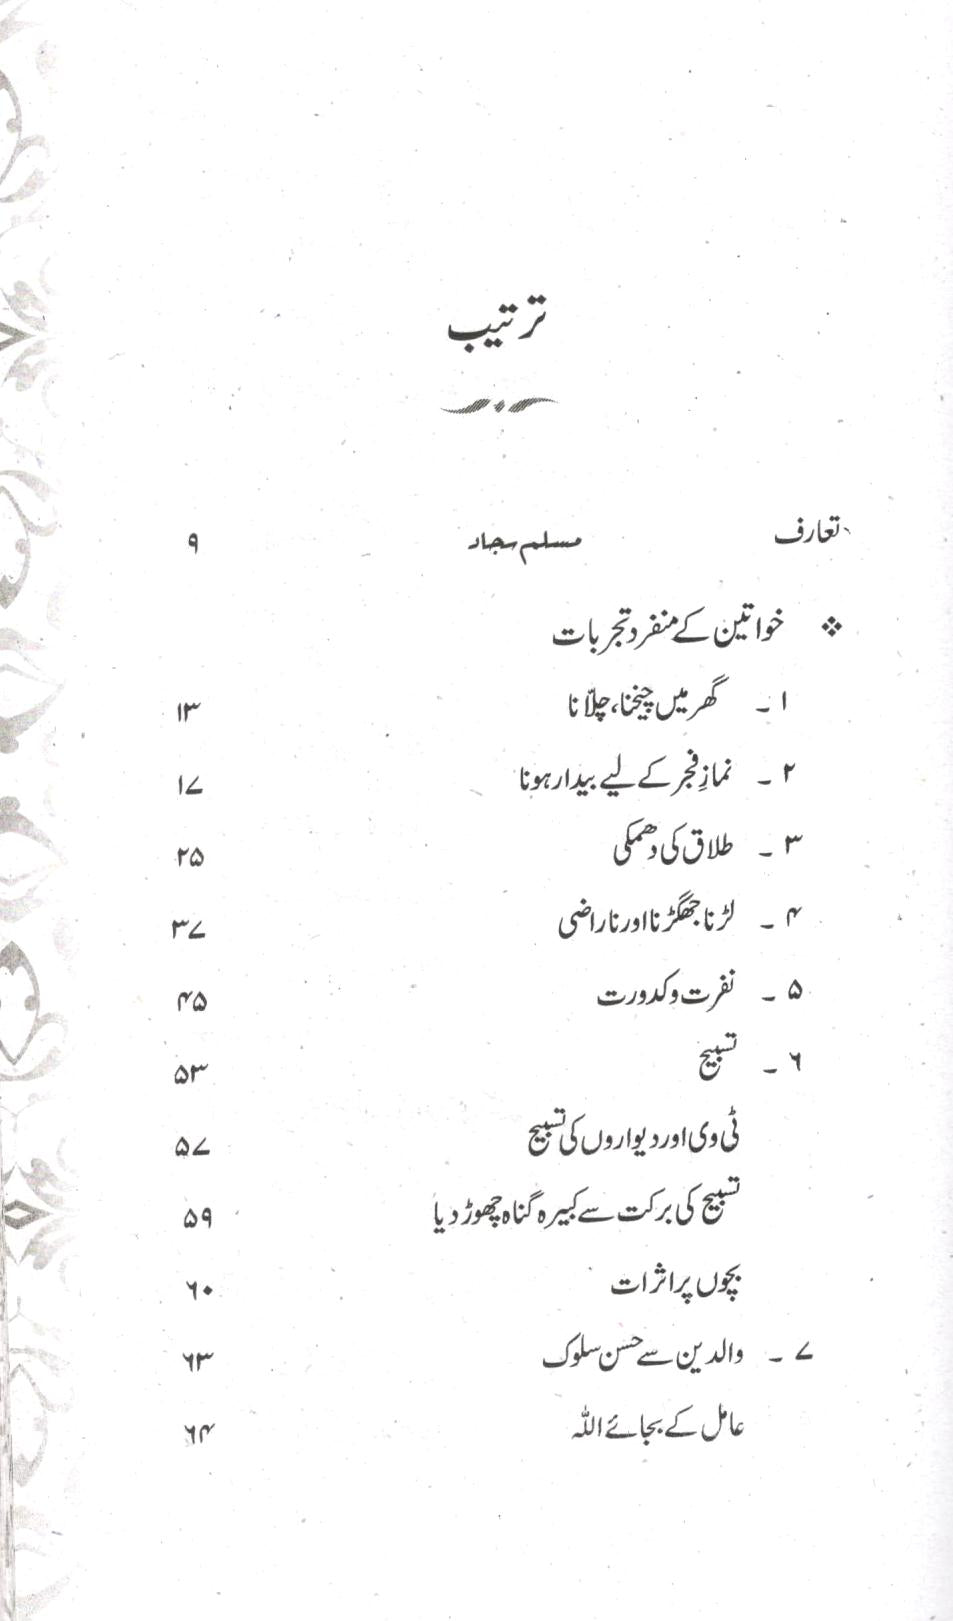 ترتیب
تعارف مسلم سجاد ۹
❖ خواتین کے منفرد تجربات
۱ ۔ گھر میں چیخنا، چلّانا ۱۳
۲ ۔ نمازِ فجر کے لیے بیدار ہونا ۱۷
۳ ۔ طلاق کی دھمکی ۲۵
۴ ۔ لڑنا جھگڑنا اور ناراضی ۳۷
۵ ۔ نفرت و کدورت ۴۵
۶ ۔ تسبیح ۵۳
ٹی وی اور دیواروں کی تسبیح ۵۷
تسبیح کی برکت سے کبیرہ گناہ چھوڑ دیا ۵۹
بچوں پر اثرات ۶۰
۷ ۔ والدین سے حسن سلوک ۶۳
عامل کے بجائے اللہ ۶۴